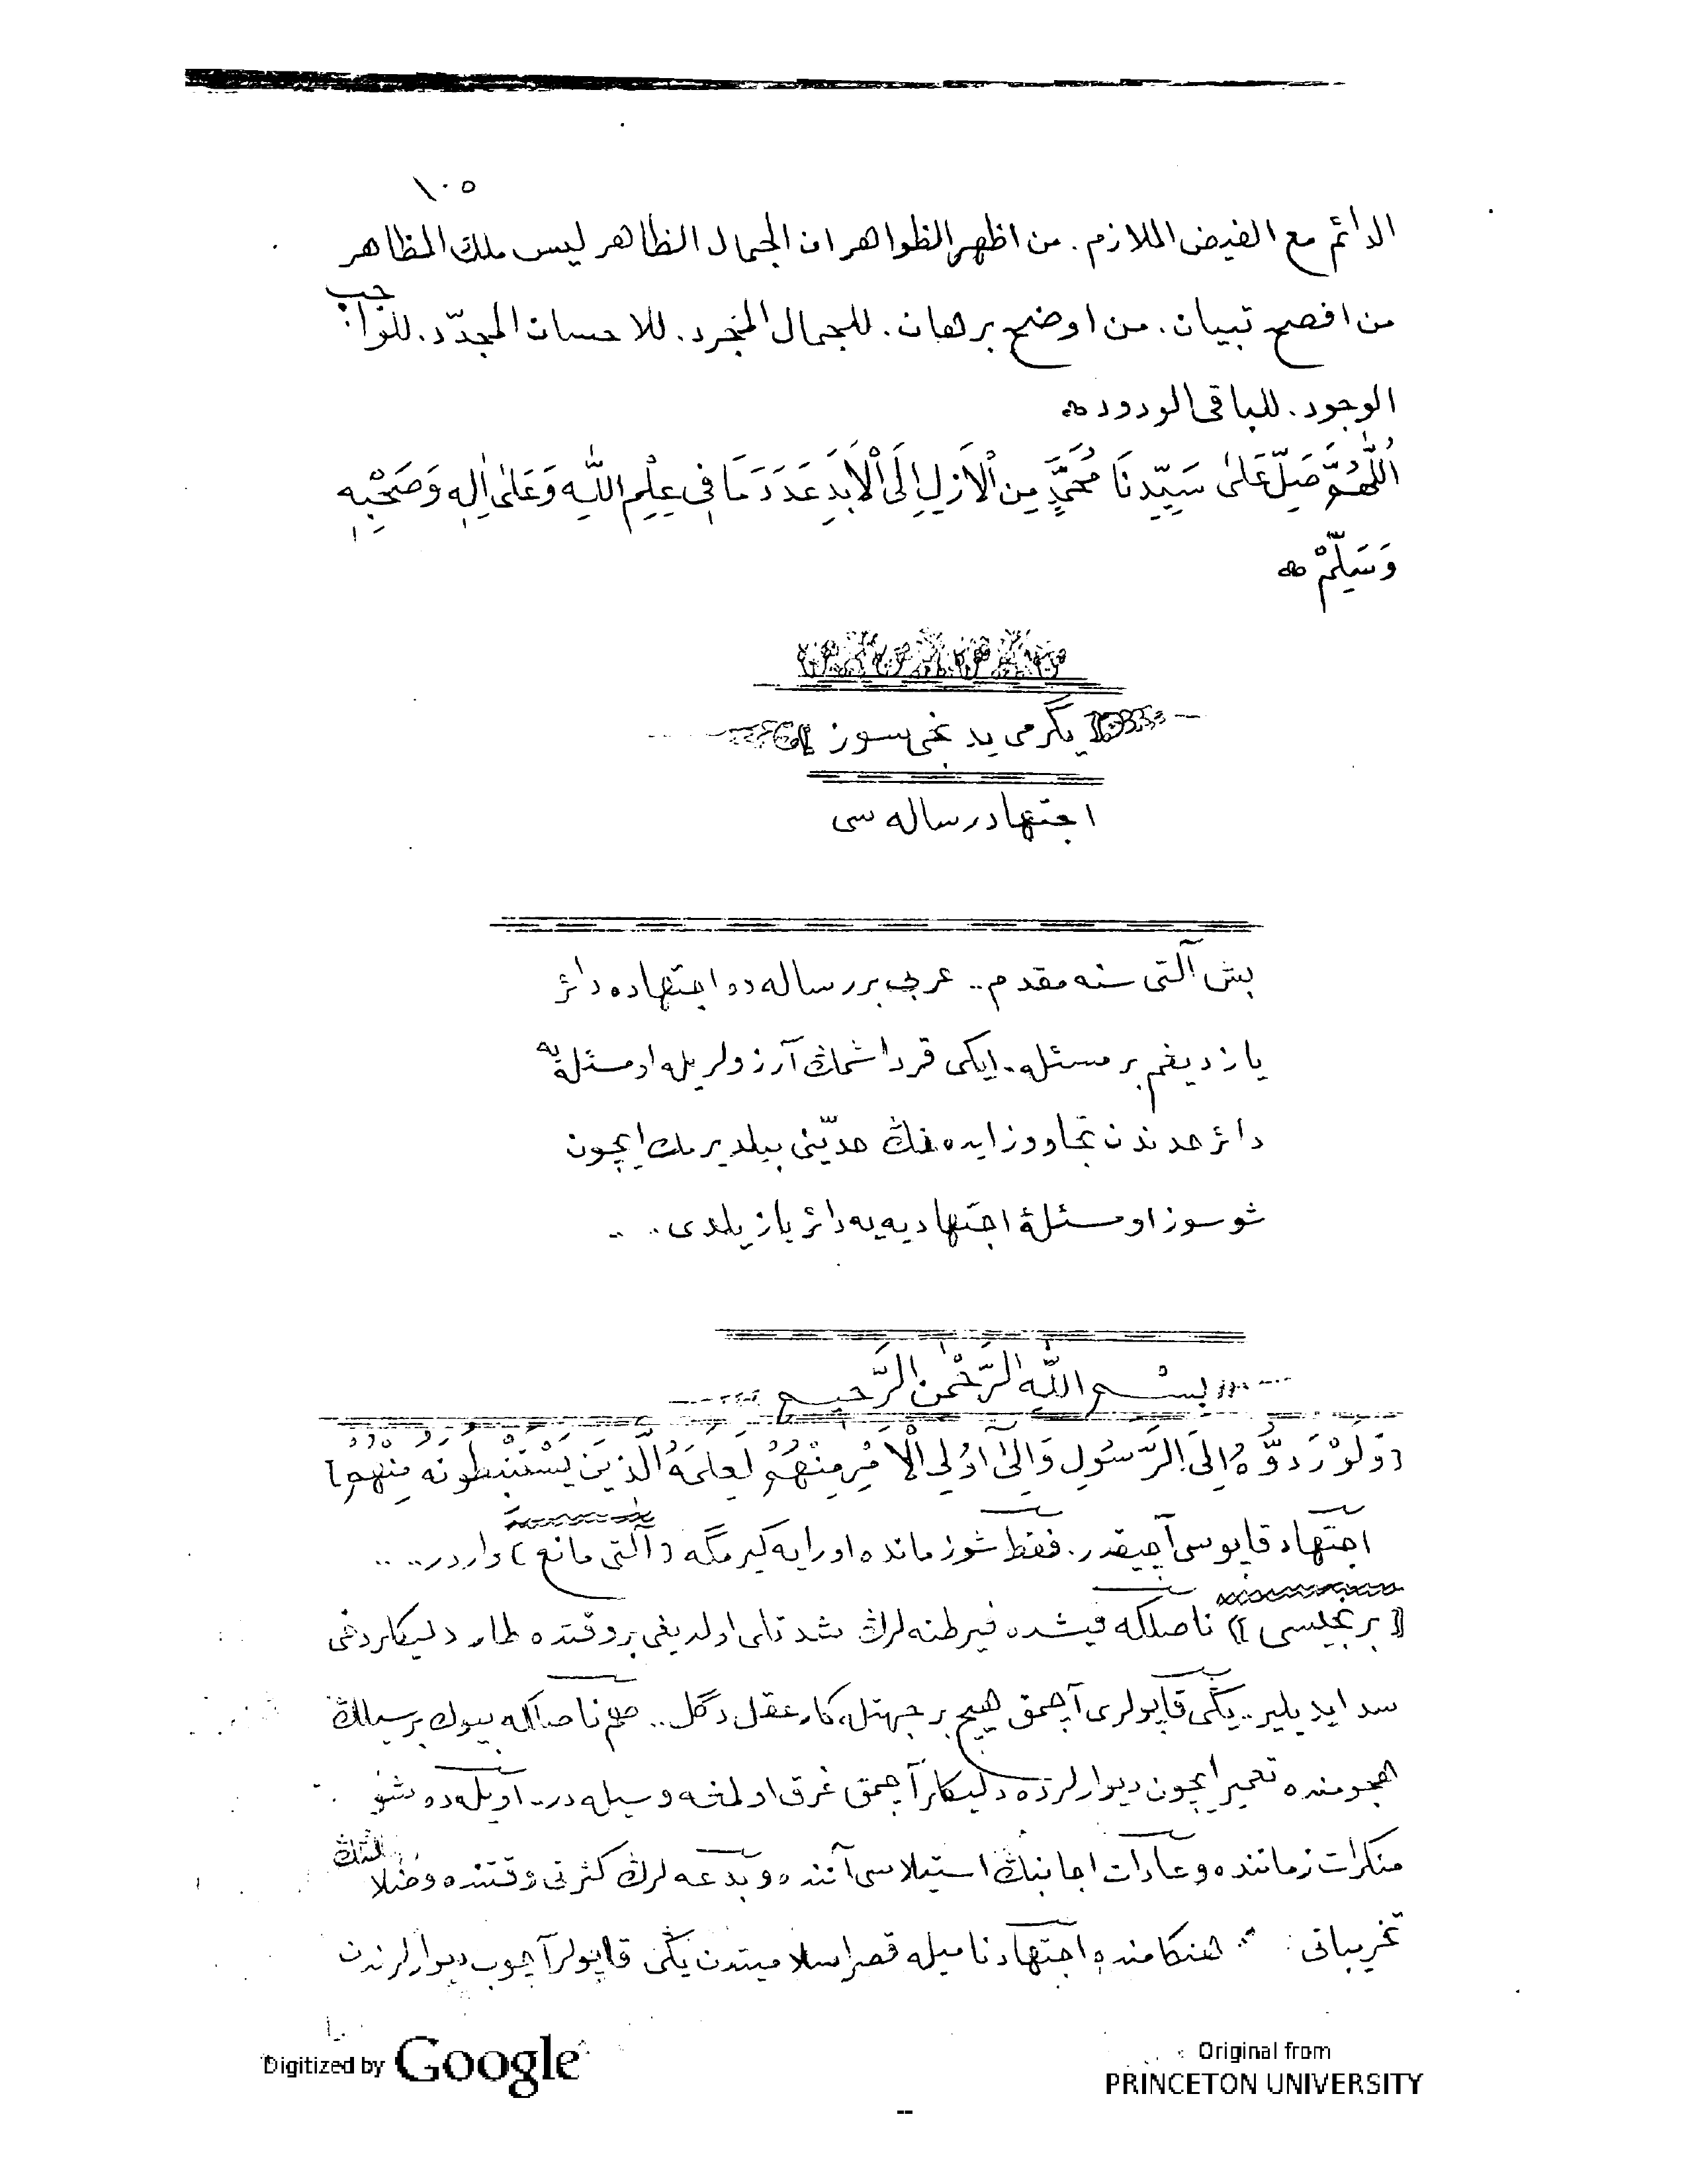 ١٠٥
الدائم مع الفيض الملازم. من اظهر الظواهر ان الجمال الظاهر ليس ملك المظاهر
من افصح تبيان. من اوضح برهان. للجمال المجرد. للاحسان المجدّد. للواجب
الوجود. للباقى الودود
اَللّٰهُمَّ صَلِّ عَلٰى سَيِّدِنَا مُحَمَّدٍ مِنَ الْاَزَلِ اِلَى الْاَبَدِ عَدَدَ مَا فِى عِلْمِ اللّٰهِ وَعَلٰى اٰلِهِ وَصَحْبِهِ
وَسَلِّمْ
يگرمى يدنجى سوز
اجتهاد رساله سى
بش آلتى سنه مقدم.. عربى بر رساله ده اجتهاده دائر
يازديغم بر مسئله. ايكى قرداشمڭ آرزولريله او مسئله يه
دائر حدندن تجاوز ايده نڭ حدّينى بيلديرمك ايچون
شو سوز او مسئلۀ اجتهاديه يه دائر يازيلدى. ..
بِسْمِ اللّٰهِ الرَّحْمٰنِ الرَّحِيمِ
(وَلَوْ رَدُّوهُ اِلَى الرَّسُولِ وَاِلٰٓى اُولِى الْاَمْرِ مِنْهُمْ لَعَلِمَهُ الَّذِينَ يَسْتَنْبِطُونَهُ مِنْهُمْ)
اجتهاد قاپوسى آچيقدر. فقط شو زمانده اورايه گيرمگه (آلتى مانع) واردر....
((برنجيسى)) ناصلكه قيشده فيرطنه لرڭ شدتلى اولديغى بر وقتده طار دليكلر دخى
سد ايديلير.. يڭى قاپولرى آچمق هيچ بر جهتله كار عقل دگل.. هم ناصلكه بيوك بر سيلڭ
هجومنده تعمير ايچون ديوارلرده دليكلر آچمق غرق اولمغه وسيله در.. اويله ده شو
منكرات زماننده و عادات اجانبڭ استيلاسى آننده و بدعه لرڭ كثرتى وقتنده و ضلالتڭ
تخريباتى هنكامنده اجتهاد ناميله قصر اسلاميتدن يڭى قاپولر آچوب ديوارلرندن
Digitized by Google
Original from
PRINCETON UNIVERSITY
--